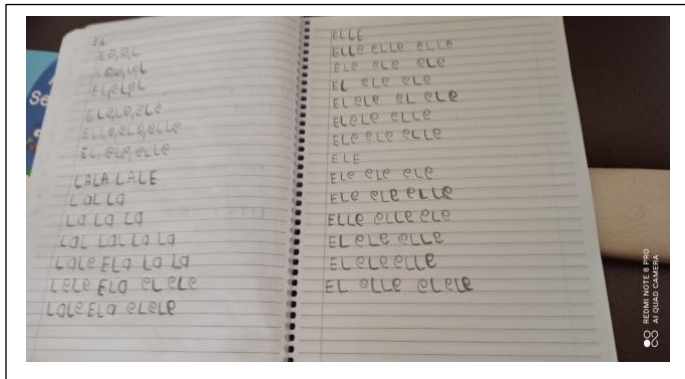 Se
EL
EL,e,L
EL,eL,eL
ELeLe,eLe
ELLe,eLe,eLLe
EL,eLe,eLLe
LALA LALE
L aL La
La La La
LaL LaL La La
LaLe ELa La La
LeLe ELa eL eLe
LaLe ELa eLeLe
ELLE
ELLe eLLe eLLe
ELe eLe eLe
EL eLe eLe
ELeLe eL eLe
ELeLe eLLe
ELe eLe eLLe
ELE
ELe eLe eLe
ELe eLe eLLe
ELLe eLLe eLe
EL eLe eLLe
EL eLe eLLe
EL eLLe eLeLe
REDMI NOTE 8 PRO
AI QUAD CAMERA